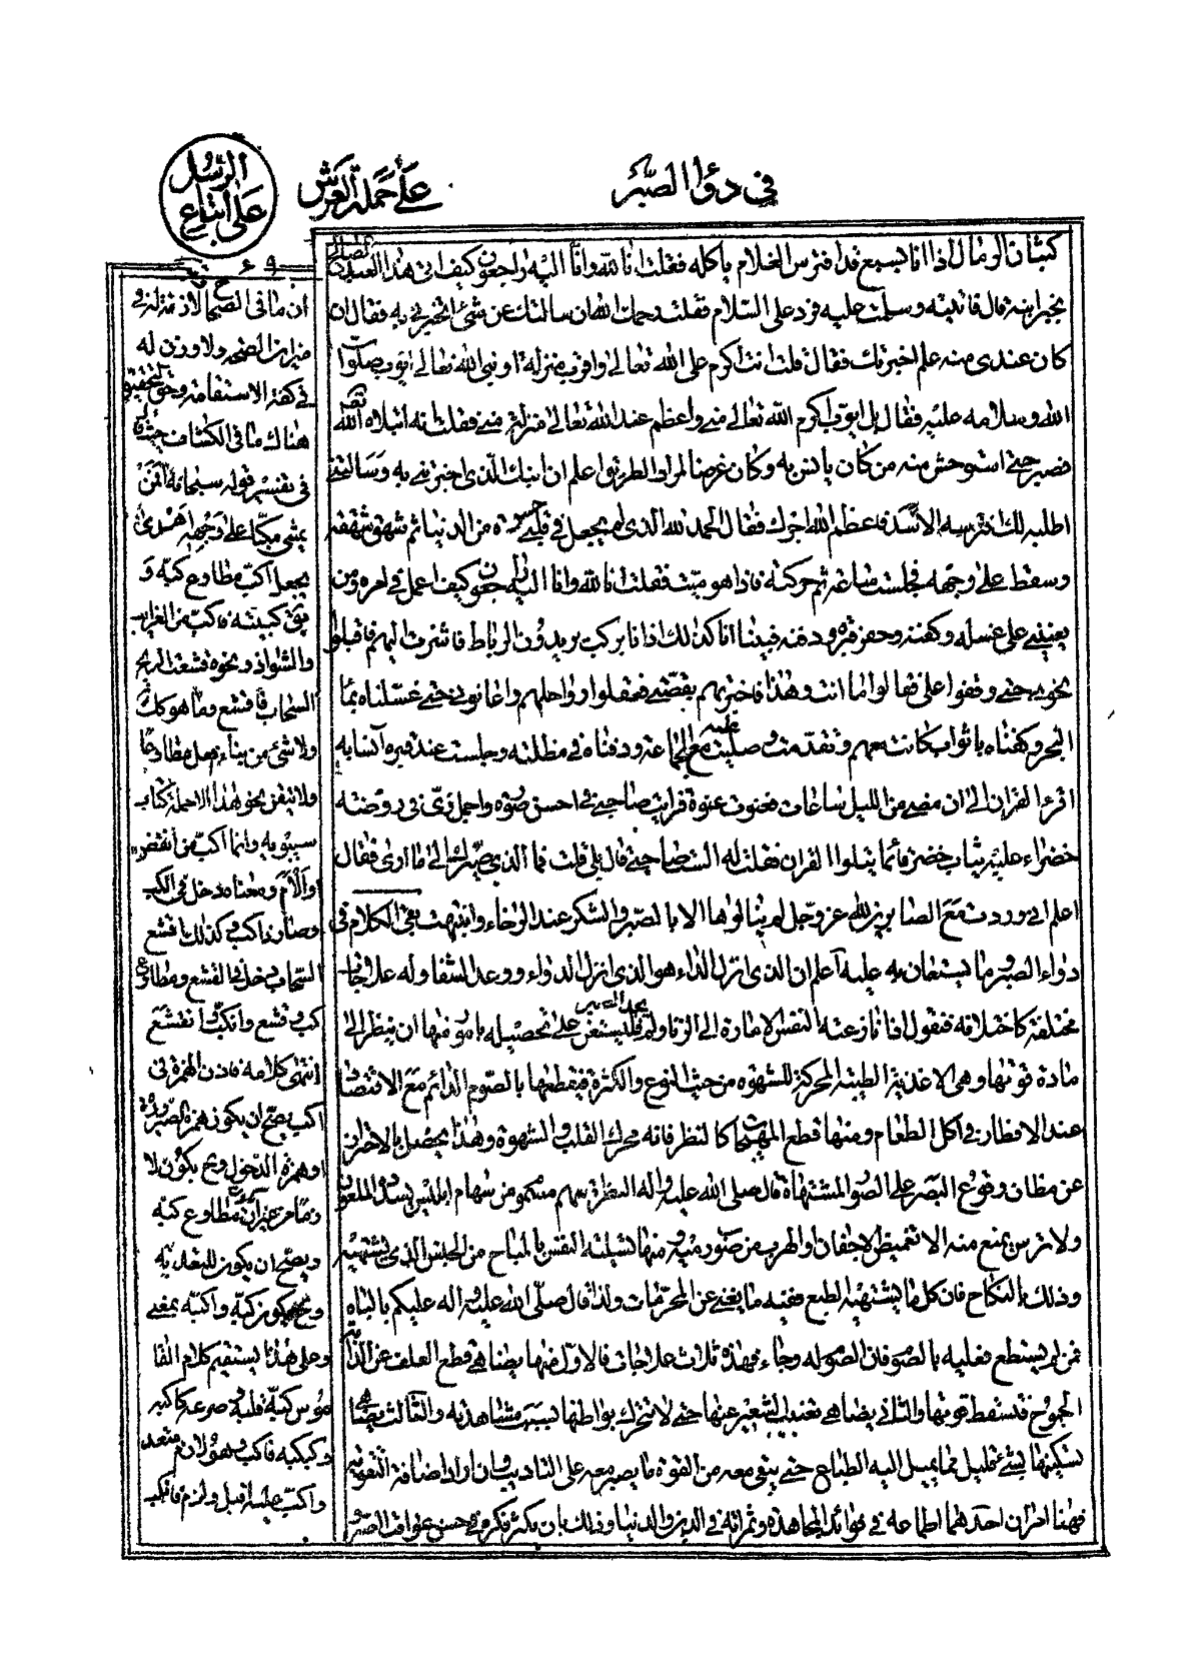 في دواء الصبر
على حملة العرش
الرسل على اتباع
٦٩
كثبان الرمال اذا انا بسبع قد افترس الغلام ياكله فقلت انا لله وانا اليه راجعون كيف اتى هذا العبد الصالح
بخبر ابنه قال فاتيته وسلمت عليه فرد علي السلام فقلت رحمك الله ان سالتك عن شئ تخبرني به فقال ان
كان عندي منه علم اخبرتك فقال قلت انت اكرم على الله تعالى واقرب منزلة او نبي الله تعالى ايوب صلوات
الله وسلامه عليه فقال بل ايوب اكرم على الله تعالى مني واعظم عند الله تعالى منزلة مني فقلت انه ابتلاه الله تعالى
فصبر حتى استوحش منه من كان يانس به وكان غرضا لمرار الطريق اعلم ان ابنك الذي اخبرتني به وسالتني
اطلبه لك افترسه الاسد فاعظم الله اجرك فقال الحمد لله الذي لم يجعل في قلبي حسرة من الدنيا ثم شهق شهقة
وسقط على وجهه فجلست ساعة ثم حركته فاذا هو ميت فقلت انا لله وانا اليه راجعون كيف اعمل في امره ومن
يعينني على غسله وكفنه وحفر قبره ودفنه فبينما انا كذلك اذ انا بركب يريدون الرباط فاشرت اليهم فاقبلوا
نحوي حتى وقفوا علي فقالوا ما انت وهذا فاخبرتهم بقصتي فعقلوا رواحلهم واعانوني حتى غسلناه بماء
البحر وكفناه باثواب كانت معهم وتقدمت وصليت عليه مع الجماعة ودفناه في مظلته وجلست عند قبره آنسا به
اقرء القران الى ان مضى من الليل ساعات فغفوت غفوة فرايت صاحبي في احسن صورة واجمل زي في روضة
خضراء عليه ثياب خضر قائما يتلوا القران فقلت له الست صاحبي قال بلى قلت فما الذي صيرك الى ما ارى فقال
اعلم اني وردت مع الصابرين لله عز وجل لم ينالوها الا بالصبر والشكر عند الرخاء وانتبهت بقي الكلام في
دواء الصبر وما يستعان به عليه اعلم ان الذي انزل الداء هو الذي انزل الدواء ووعد الشفا وله علاجات
مختلفة كاختلافه فنقول اذا نازعته النفس الامارة الى الزنا ولم فليستعن على تحصيله بامور منها ان ينظر الى
مادة قوتها وهي الاغذية الطيبة المحركة للشهوة من حيث النوع والكثرة فيقطعها بالصوم الدائم مع الاقتصاد
عند الافطار في اكل الطعام ومنها قطع المهيجات كالنظر فانه محرك القلب والشهوة وهذا يحصل بالاحتراز
عن مظان وقوع البصر على الصور المشتهاة قال صلى الله عليه واله النظرة سهم مسموم من سهام ابليس يسدده الملعون
ولا ترس يمنع منه الا تغميض الاجفان والهرب من صوب رميه ومنها تسلية النفس بالمباح من الجنس الذي يشتهيه
وذلك بالنكاح فان كل ما يشتهيه الطبع ففيه ما يغني عن المحرمات ولذا قال صلى الله عليه واله عليكم بالباه
فمن لم يستطع فعليه بالصوم فان الصوم له وجاء فهذه ثلاث علاجات فالاول منها يضاهي قطع العلف عن الدابة
الجموح فتسقط قوتها والثاني يضاهي تغييب الشعير عنها حتى لا تتحرك بواطنها بسبب مشاهدته والثالث يضاهي
تسكينها بشئ قليل مما يميل اليه الطباع حتى يبقى معه من القوة ما يصبر معه على التاديب وان اراد اضافة التقوية
فهنا امران احدهما اطماعه في فوائد المجاهدة وثمراته في الدين والدنيا وذلك بان يكثر فكره في حسن عواقب الصبر و
ان ما في الصحاح لا
ميزان الصحة ولا وزن له
في كفة الاستقامة وحق التحقيق
هناك ما في الكشاف حيث قال
في تفسير قوله سبحانه افمن
يمشي مكبا على وجهه اهدى
يجعل اكب مطاوع كبه و
يق كببته فاكب من الغرائب
والشواذ ونحوه قشعت الريح
السحاب فاقشع وما هو كذلك
ولا شئ من بناء افعل مطاوعا
ولا يتقن نحو هذا الا حملة كتاب
سيبويه وانما اكب من انفض
والام ومعناه دخل في الكب
وصار ذا كب وكذلك اقشع
السحاب دخل في القشع ومطاوع
كب وقشع وانكب وانقشع
انتهى كلامه فاذن الهمزة في
اكب يصح ان يكون همزة الصيرورة
او همزة الدخول وح يكون لا
زما من غير ان يكون مطاوع كبه
ويصح ان يكون للتعدية
وح يكون كبه واكبه بمعنى
وعلى هذا يستقيم كلام القا
موس كبه قلبه وصرعه كاكبه
وكبكبه فاكب وهو لازم متعد
واكب عليه اقبل ولزم فانكب